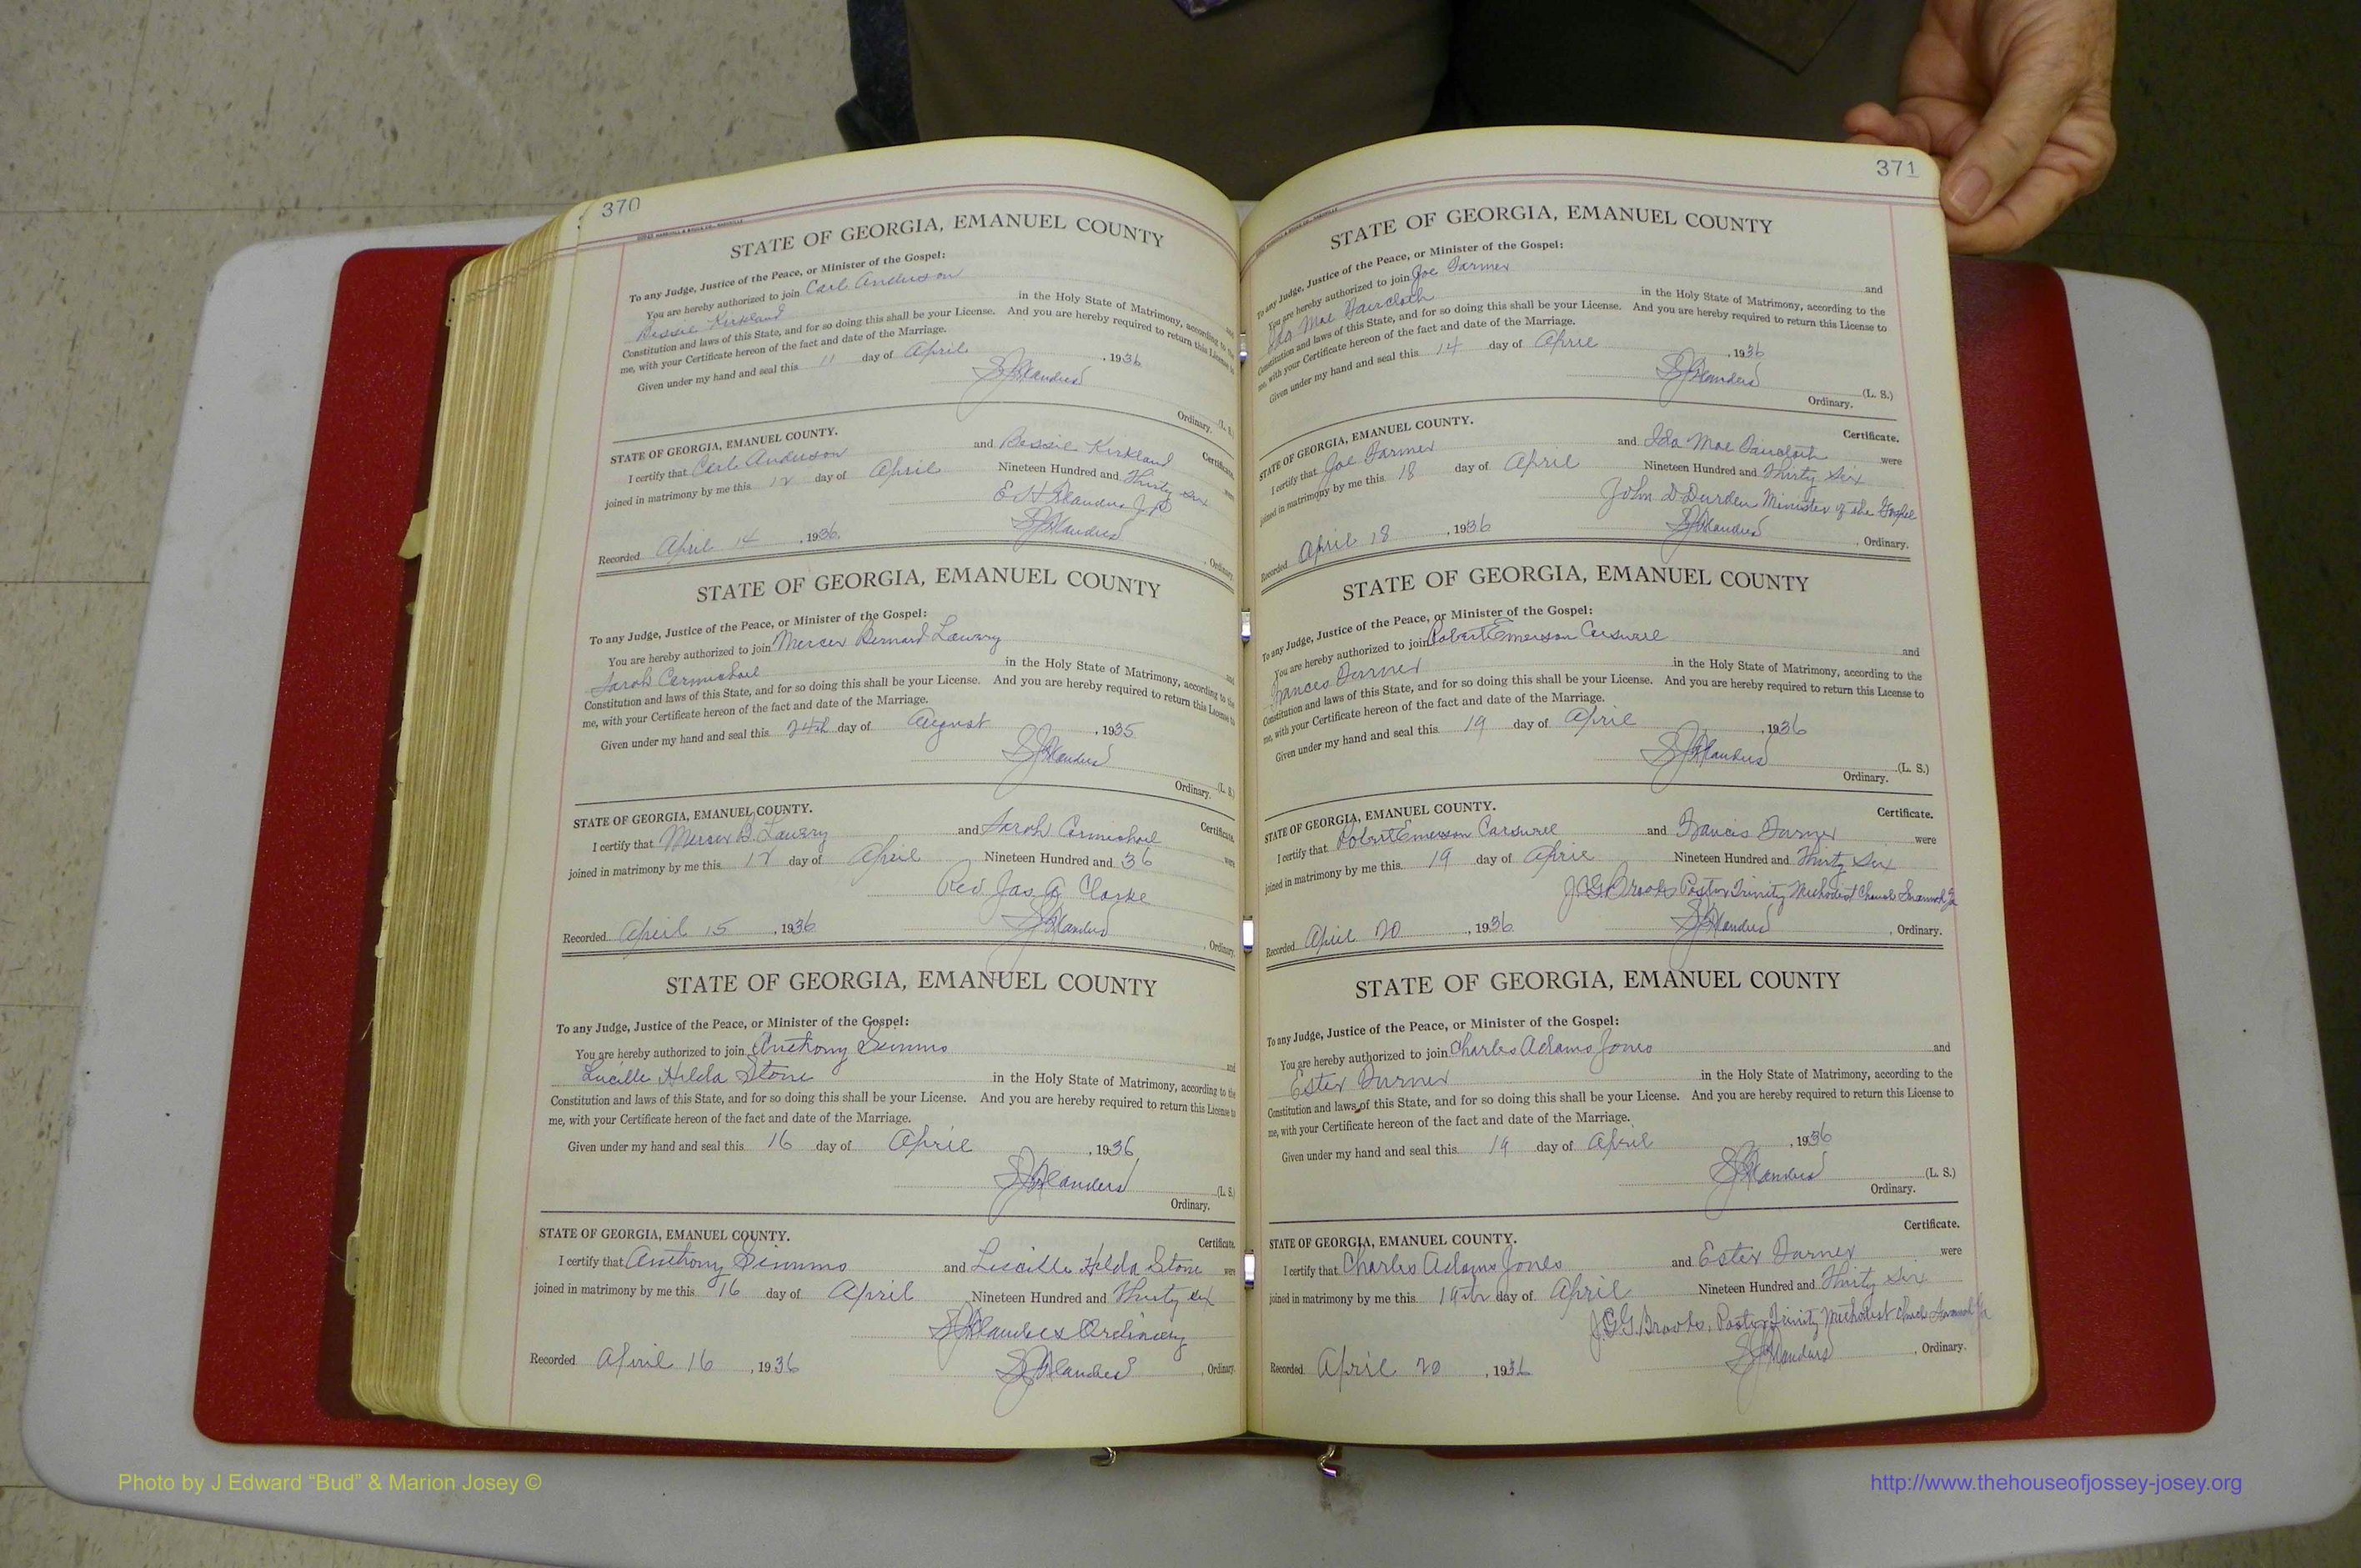 370
STATE OF GEORGIA, EMANUEL COUNTY
To any Judge, Justice of the Peace, or Minister of the Gospel:
You are hereby authorized to join Carl Anderson and
Bessie Kirkland in the Holy State of Matrimony, according to the
Constitution and laws of this State, and for so doing this shall be your License. And you are hereby required to return this License to
me, with your Certificate hereon of the fact and date of the Marriage.
Given under my hand and seal this 11 day of April, 1936
(L. S.)
Ordinary.
STATE OF GEORGIA, EMANUEL COUNTY. Certificate.
I certify that Carl Anderson and Bessie Kirkland were
joined in matrimony by me this 12 day of April Nineteen Hundred and Thirty six
E H Flanders J P
Recorded April 14, 1936. Flanders, Ordinary.
STATE OF GEORGIA, EMANUEL COUNTY
To any Judge, Justice of the Peace, or Minister of the Gospel:
You are hereby authorized to join Mercer Bernard Lawry and
Sarah Carmichael in the Holy State of Matrimony, according to the
Constitution and laws of this State, and for so doing this shall be your License. And you are hereby required to return this License to
me, with your Certificate hereon of the fact and date of the Marriage.
Given under my hand and seal this 24th day of August, 1935
Flanders (L. S.)
Ordinary.
STATE OF GEORGIA, EMANUEL COUNTY. Certificate.
I certify that Mercer B. Lawry and Sarah Carmichael were
joined in matrimony by me this 12 day of April Nineteen Hundred and 36
Rev Jas A Clarke
Recorded April 15, 1936 Flanders, Ordinary.
STATE OF GEORGIA, EMANUEL COUNTY
To any Judge, Justice of the Peace, or Minister of the Gospel:
You are hereby authorized to join Anthony Simms and
Lucille Hilda Stone in the Holy State of Matrimony, according to the
Constitution and laws of this State, and for so doing this shall be your License. And you are hereby required to return this License to
me, with your Certificate hereon of the fact and date of the Marriage.
Given under my hand and seal this 16 day of April, 1936
Flanders (L. S.)
Ordinary.
STATE OF GEORGIA, EMANUEL COUNTY. Certificate.
I certify that Anthony Simms and Lucille Hilda Stone were
joined in matrimony by me this 16 day of April Nineteen Hundred and Thirty six
Flanders Ordinary
Recorded April 16, 1936 Flanders, Ordinary
371
STATE OF GEORGIA, EMANUEL COUNTY
To any Judge, Justice of the Peace, or Minister of the Gospel:
You are hereby authorized to join Joe Farmer and
Ida Mae Faircloth in the Holy State of Matrimony, according to the
Constitution and laws of this State, and for so doing this shall be your License. And you are hereby required to return this License to
me, with your Certificate hereon of the fact and date of the Marriage.
Given under my hand and seal this 14 day of April, 1936
Flanders (L. S.)
Ordinary.
STATE OF GEORGIA, EMANUEL COUNTY. Certificate.
I certify that Joe Farmer and Ida Mae Faircloth were
joined in matrimony by me this 18 day of April Nineteen Hundred and Thirty Six
John D Durden Minister of the Gospel
Recorded April 18, 1936 Flanders, Ordinary.
STATE OF GEORGIA, EMANUEL COUNTY
To any Judge, Justice of the Peace, or Minister of the Gospel:
You are hereby authorized to join Robert Emerson Carswell and
Frances Durner in the Holy State of Matrimony, according to the
Constitution and laws of this State, and for so doing this shall be your License. And you are hereby required to return this License to
me, with your Certificate hereon of the fact and date of the Marriage.
Given under my hand and seal this 19 day of April, 1936
Flanders (L. S.)
Ordinary.
STATE OF GEORGIA, EMANUEL COUNTY. Certificate.
I certify that Robert Emerson Carswell and Francis were
joined in matrimony by me this 19 day of April Nineteen Hundred and Thirty Six
J.G.G. Brooks Pastor Trinity Methodist Church Savannah Ga
Recorded April 20, 1936 Flanders, Ordinary.
STATE OF GEORGIA, EMANUEL COUNTY
To any Judge, Justice of the Peace, or Minister of the Gospel:
You are hereby authorized to join Charles Adams Jones and
Ester Durner in the Holy State of Matrimony, according to the
Constitution and laws of this State, and for so doing this shall be your License. And you are hereby required to return this License to
me, with your Certificate hereon of the fact and date of the Marriage.
Given under my hand and seal this 19 day of April, 1936
Flanders (L. S.)
Ordinary.
STATE OF GEORGIA, EMANUEL COUNTY. Certificate.
I certify that Charles Adams Jones and Ester Durner were
joined in matrimony by me this 19th day of April Nineteen Hundred and Thirty six
J.G.G. Brooks, Pastor Trinity Methodist Church Savannah Ga
Recorded April 20, 1936 Flanders, Ordinary.
Photo by J Edward “Bud” & Marion Josey ©
http://www.thehouseofjossey-josey.org